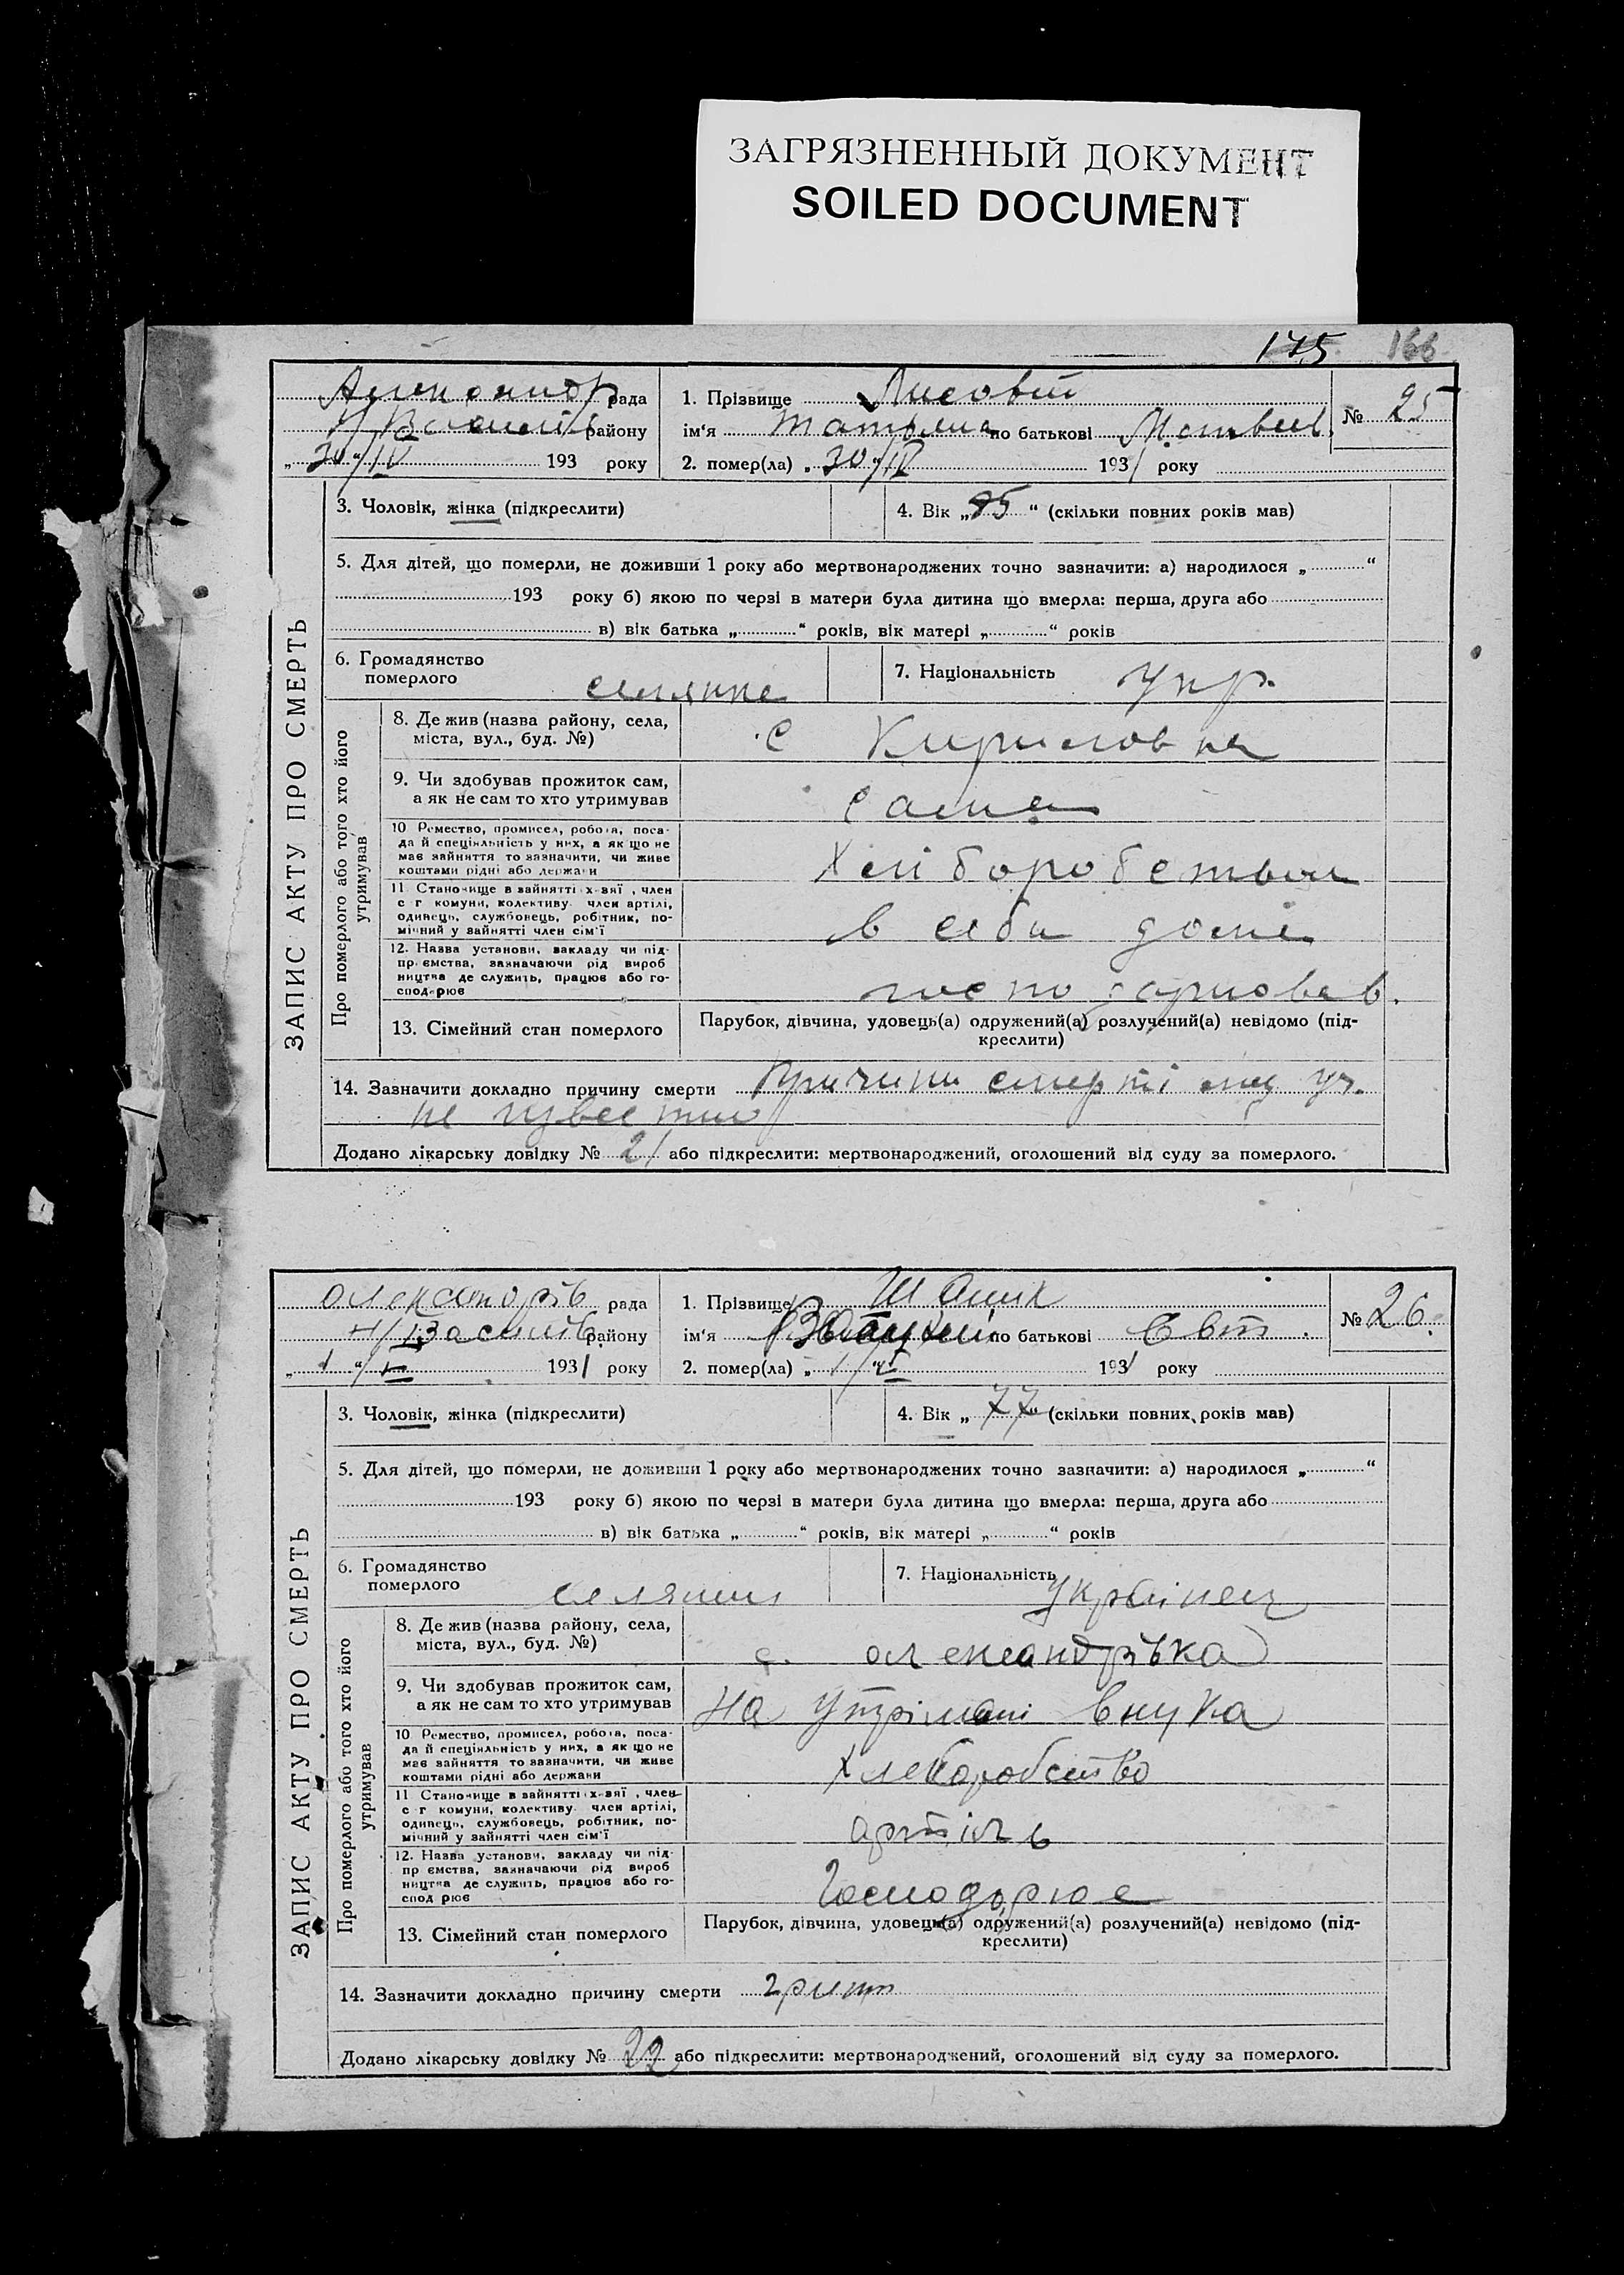 ЗАГРЯЗНЕННЫЙ ДОКУМЕНТ
SOILED DOCUMENT
175 166
ЗАПИС АКТУ ПРО СМЕРТЬ
рада
району
„30“/IV 193 року
1. Прізвище Лисовіт
ім‘я Татьяна по батькові Матвеев.
№ 25
2. помер(ла) „30“/IV 1931 року
3. Чоловік, жінка (підкреслити)
4. Вік „85“ (скільки повних років мав)
5. Для дітей, що померли, не доживши 1 року або мертвонароджених точно зазначити: а) народилося „ “
193 року б) якою по черзі в матери була дитина що вмерла: перша, друга або
в) вік батька „ “ років, вік матері „ “ років
6. Громадянство
померлого
7. Національність Укр.
Про померлого або того хто його
утримував
8. Де жив (назва району, села,
міста, вул., буд. №)
с Кириловка
9. Чи здобував прожиток сам,
а як не сам то хто утримував
сама
10 Ремество, промисел, робота, поса-
да й спеціяльність у них, а як що не
має зайняття то зазначити, чи живе
коштами рідні або держави
Хліборобством
11 Становище в зайнятті х-вяї, член
с г комуни, колективу член артілі,
одинець, службовець, робітник, по-
мічний у зайнятті член сім'ї
в себи доме
12. Назва установи, закладу чи під-
пр ємства, зазначаючи рід вироб
ництва де служить, працює або го-
сподарює
13. Сімейний стан померлого
Парубок, дівчина, удовець(а) одружений(а) розлучений(а) невідомо (під-
креслити)
14. Зазначити докладно причину смерти причини смерті
не известно
Додано лікарську довідку № 21 або підкреслити: мертвонароджений, оголошений від суду за померлого.
ЗАПИС АКТУ ПРО СМЕРТЬ
Олександрів рада
Н/Василів району
„1“/V 1931 року
1. Прізвище
ім‘я по батькові Євт.
№ 26.
2. помер(ла) „1“/V 1931 року
3. Чоловік, жінка (підкреслити)
4. Вік „77“ (скільки повних років мав)
5. Для дітей, що померли, не доживши 1 року або мертвонароджених точно зазначити: а) народилося „ “
193 року б) якою по черзі в матери була дитина що вмерла: перша, друга або
в) вік батька „ “ років, вік матері „ “ років
6. Громадянство
померлого
селянин
7. Національність Українец
Про померлого або того хто його
утримував
8. Де жив (назва району, села,
міста, вул., буд. №)
с. Олександрівка
9. Чи здобував прожиток сам,
а як не сам то хто утримував
на утрімані внука
10 Ремество, промисел, робота, поса-
да й спеціяльність у них, а як що не
має зайняття то зазначити, чи живе
коштами рідні або держави
Хлеборобство
11 Становище в зайнятті х-вяї, член
с г комуни, колективу член артілі,
одинець, службовець, робітник, по-
мічний у зайнятті член сім'ї
артіль
12. Назва установи, закладу чи під-
пр ємства, зазначаючи рід вироб
ництва де служить, працює або го-
спод рює
Господорює
13. Сімейний стан померлого
Парубок, дівчина, удовець(а) одружений(а) розлучений(а) невідомо (під-
креслити)
14. Зазначити докладно причину смерти грипп
Додано лікарську довідку № 22 або підкреслити: мертвонароджений, оголошений від суду за померлого.